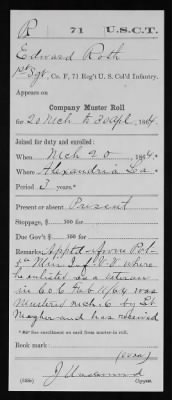 R 71 U.S.C.T.
Edward Roth
1st Sgt, Co. F, 71 Reg't U. S. Col'd Infantry.
Appears on
Company Muster Roll
for 20 Mch to 30 Apl, 1864.
Joined for duty and enrolled:
When Mch 20, 1864.*
Where Alexandria La
Period 3 years.*
Present or absent Present
Stoppage, $ 100 for
Due Gov't $ 100 for
Remarks: Apptd from
where
he enlisted as a veteran
in Co C Feb 1/64 was
mustered Mch. 6 by Lt
and has received
*See enrollment on card from muster-in roll.
Book mark:
(over)
(358c) Copyist.